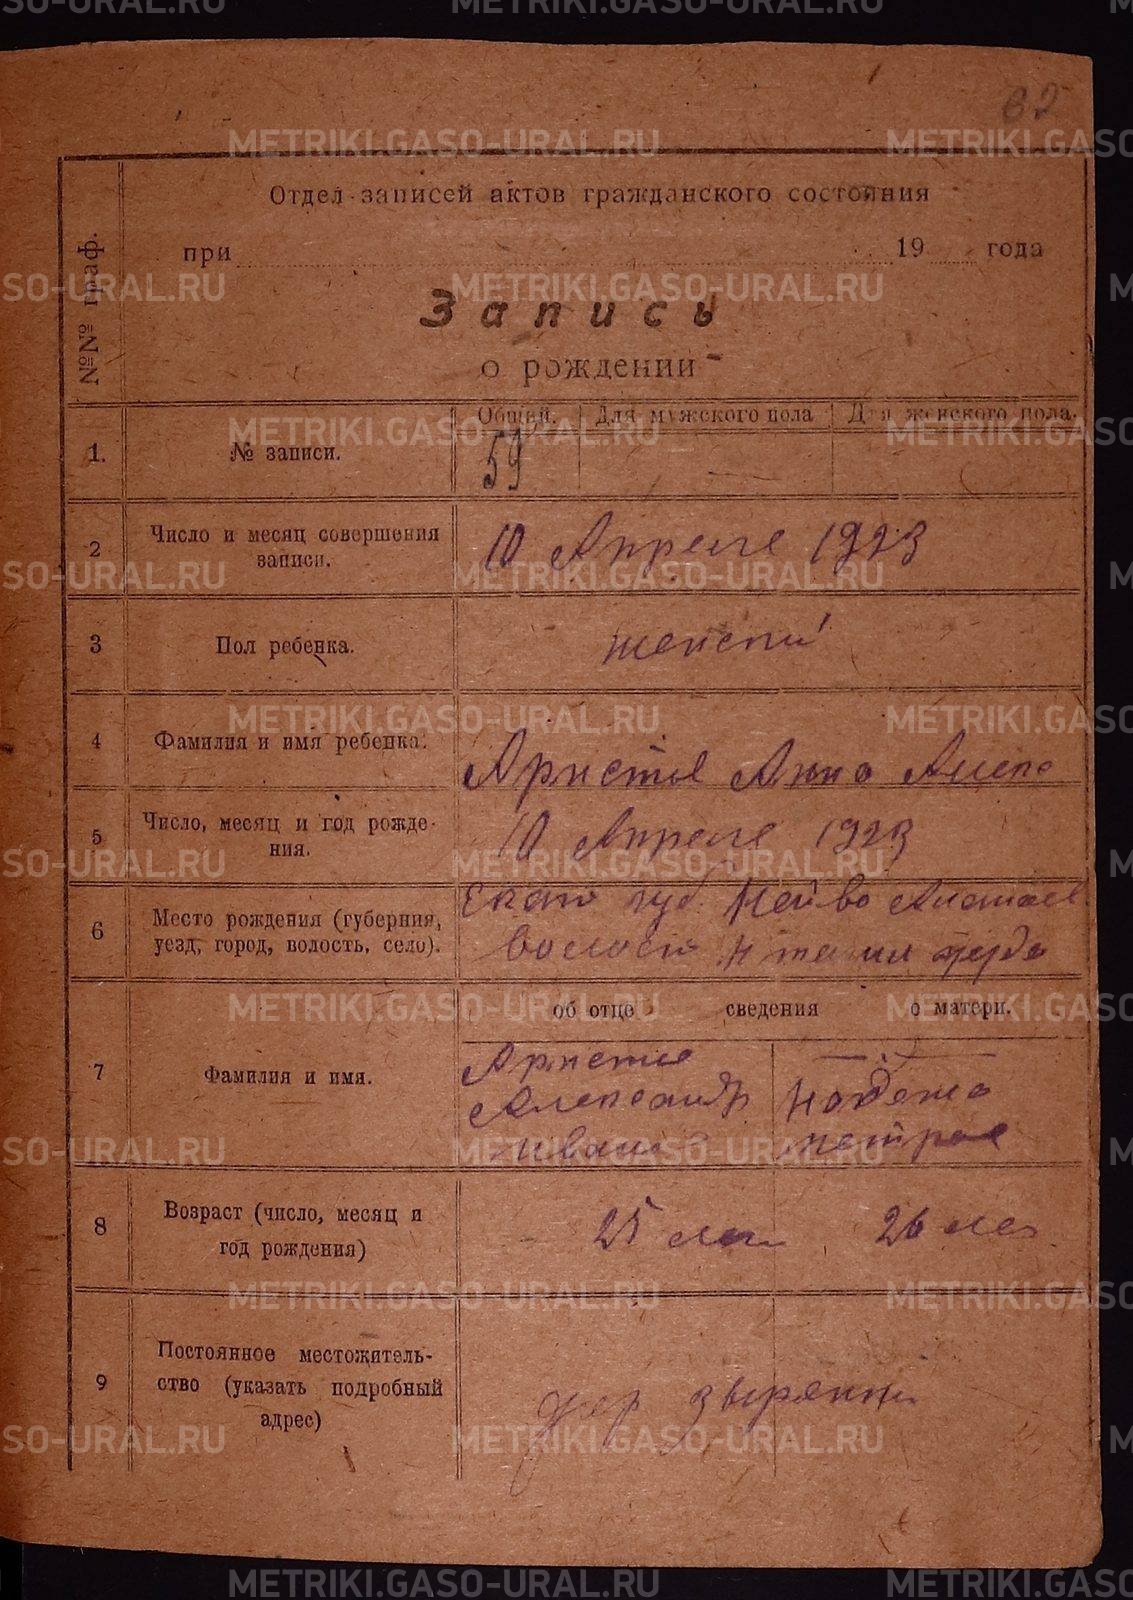 62
№№ граф.
Отдел записей актов гражданского состояния
при 19 года
Запись
о рождении
Общий. Для мужского пола Для женского пола.
1. № записи. 59
2 Число и месяц совершения
записи. 10 Апреле 1923
3 Пол ребенка. женский
4 Фамилия и имя ребенка. Анна Алекс
5 Число, месяц и год рожде-
ния. 10 Апреле 1923
6 Место рождения (губерния,
уезд, город, волость, село). Екат губ.
об отце сведения о матери.
7 Фамилия и имя.
Александр
Надежда
8 Возраст (число, месяц и
год рождения) 25 лет 26 лет
9 Постоянное местожитель-
ство (указать подробный
адрес)
дер
METRIKI.GASO-URAL.RU